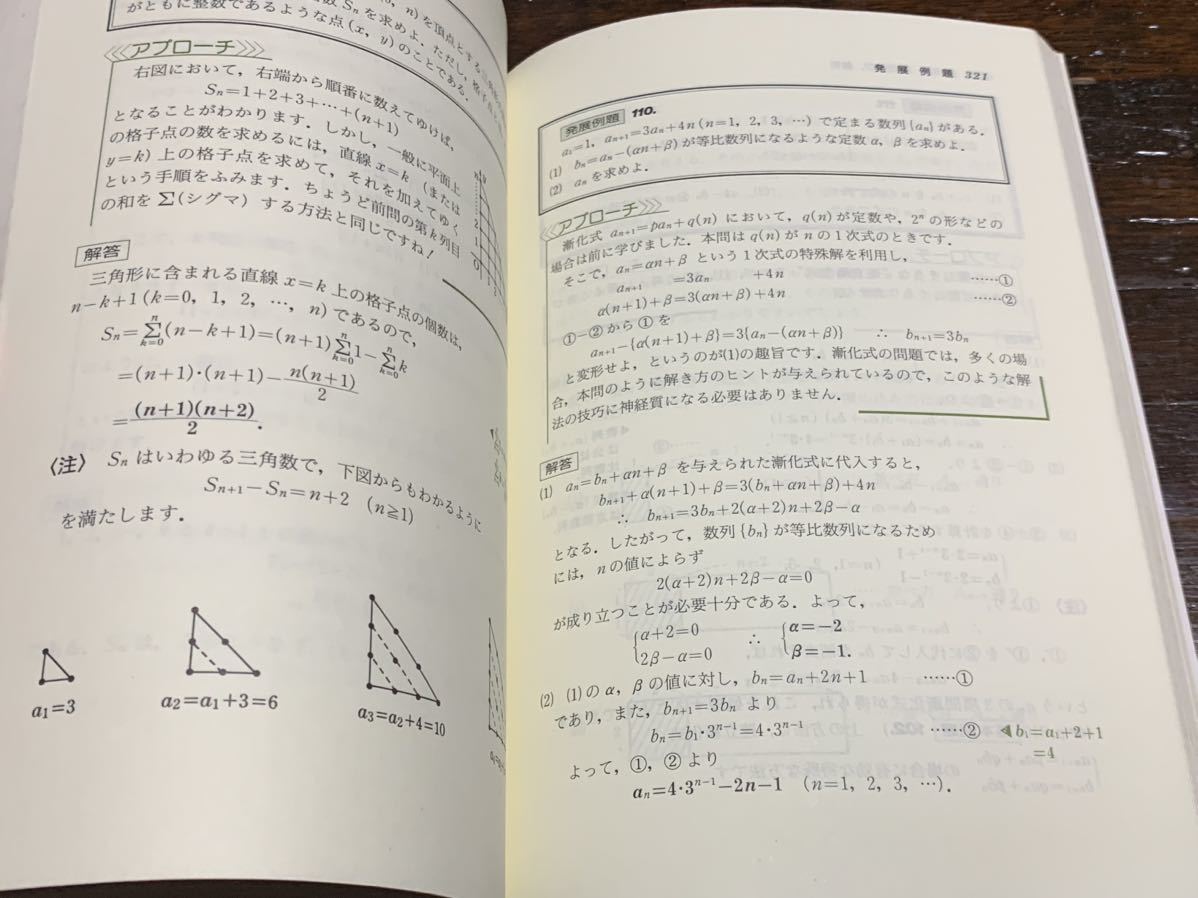 , n) を頂点とする三角
数 Sn を求めよ．ただし，格子点
がともに整数であるような点(x, y)のことである．
アプローチ
右図において，右端から順番に数えてゆけば，
Sn=1+2+3+…+(n+1)
となることがわかります．しかし，一般に平面上
の格子点の数を求めるには，直線 x=k (または
y=k) 上の格子点を求めて，それを加えてゆく
という手順をふみます．ちょうど前問の第k列目
の和を Σ(シグマ) する方法と同じですね！
解答
三角形に含まれる直線 x=k 上の格子点の個数は，
n-k+1 (k=0, 1, 2, …, n) であるので，
Sn=Σ[k=0→n](n-k+1)=(n+1)Σ[k=0→n]1-Σ[k=0→n]k
=(n+1)・(n+1)-n(n+1)/2
=(n+1)(n+2)/2．
〈注〉 Sn はいわゆる三角数で，下図からもわかるように
Sn+1-Sn=n+2 (n≧1)
を満たします．
a1=3
a2=a1+3=6
a3=a2+4=10
発展例題 321
発展例題 110.
a1=1, an+1=3an+4n (n=1, 2, 3, …) で定まる数列{an}がある．
(1) bn=an-(αn+β) が等比数列になるような定数 α, β を求めよ．
(2) an を求めよ．
アプローチ
漸化式 an+1=pan+q(n) において，q(n) が定数や，2ⁿ の形などの
場合は前に学びました．本問は q(n) が n の1次式のときです．
そこで，an=αn+β という1次式の特殊解を利用し，
an+1 =3an +4n ……①
α(n+1)+β=3(αn+β)+4n ……②
①-②から①を
an+1-{α(n+1)+β}=3{an-(αn+β)} ∴ bn+1=3bn
と変形せよ，というのが(1)の趣旨です．漸化式の問題では，多くの場
合，本問のように解き方のヒントが与えられているので，このような解
法の技巧に神経質になる必要はありません．
解答
(1) an=bn+αn+β を与えられた漸化式に代入すると，
bn+1+α(n+1)+β=3(bn+αn+β)+4n
∴ bn+1=3bn+2(α+2)n+2β-α
となる．したがって，数列{bn}が等比数列になるため
には，nの値によらず
2(α+2)n+2β-α=0
が成り立つことが必要十分である．よって，
{α+2=0 ∴ {α=-2
{2β-α=0 {β=-1.
(2) (1)の α, β の値に対し，bn=an+2n+1 ……①
であり，また，bn+1=3bn より
bn=b1・3ⁿ⁻¹=4・3ⁿ⁻¹ ……② ◀b1=a1+2+1
=4
よって，①，②より
an=4・3ⁿ⁻¹-2n-1 (n=1, 2, 3, …)．